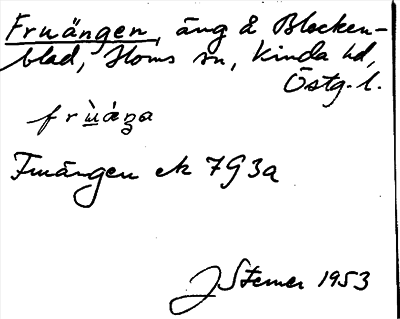 Fruängen, äng å Blecken-
blad, Horns sn, Kinda hd,
Östg. l.
frùáŋa
Fruängen ek 7G3a
J Sterner 1953